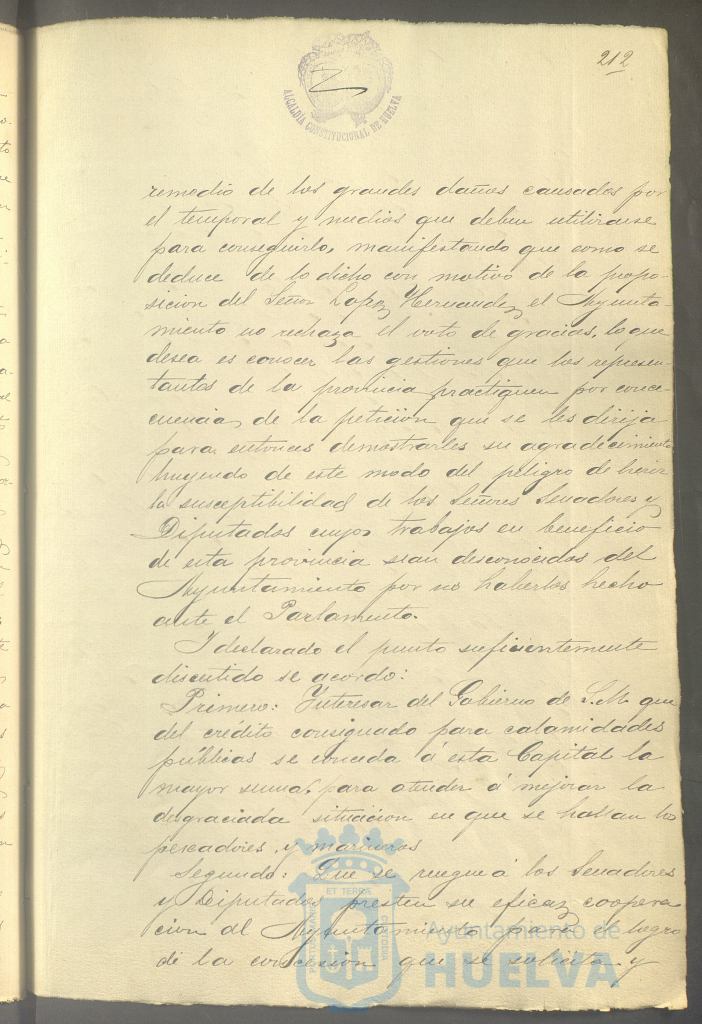 212
ALCALDIA CONSTITUCIONAL DE HUELVA
remedio de los grandes daños causados por
el temporal y medios que deben utilizarse
para conseguirlo, manifestando que como se
deduce de lo dicho con motivo de la propo-
sicion del Señor Lopez Hernandez el Ayunta-
miento no rechaza el voto de gracias, lo que
desea es conocer las gestiones que los represen-
tantes de la provincia practiquen por conce-
cuencia de la peticion que se les dirija
para entonces demostrarles su agradecimiento
huyendo de este modo del peligro de herir
la susceptibilidad de los Señores Senadores y
Diputados cuyos trabajos en beneficio
de esta provincia sean desconocidos del
Ayuntamiento por no haberlos hecho
ante el Parlamento.
Y declarado el punto suficientemente
discutido se acordó:
Primero: Interesar del Gobierno de S.M. que
del crédito consignado para calamidades
públicas se conceda á esta Capital la
mayor suma, para atender á mejorar la
desgraciada situacion en que se hallan los
pescadores y marineros
Segundo: Que se ruegue á los Senadores
y Diputados presten su eficaz coopera
cion al Ayuntamiento para el logro
de la concesion que se solicita y
ET TERRÆ CUSTODIA
Ayuntamiento de
HUELVA